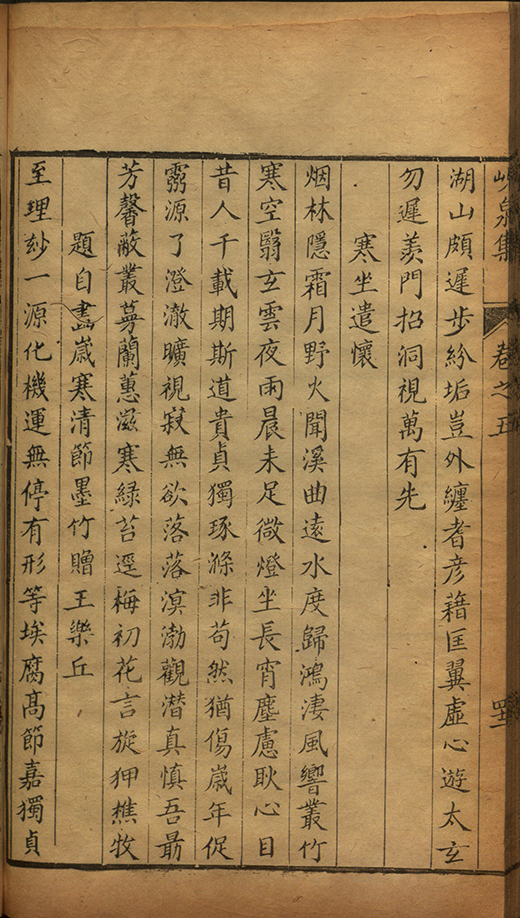 峴泉集 卷之五
湖山頗遲步紛垢豈外纏耆彦藉匡翼虛心遊太玄
勿遲羨門招洞視萬有先
寒坐遣懷
烟林隱霜月野火聞溪曲遠水度歸鴻淒風響叢竹
寒空翳玄雲夜雨晨未足微燈坐長宵塵慮耿心目
昔人千載期斯道貴貞獨琢滌非苟然猶傷歲年促
靈源了澄澈曠視寂無欲落落溟渤觀潛真慎吾勗
芳馨蔽叢薄蘭蕙滋寒綠苔逕梅初花言旋狎樵牧
題自畵歲寒清節墨竹贈王樂丘
至理玅一源化機運無停有形等埃腐髙節嘉獨貞